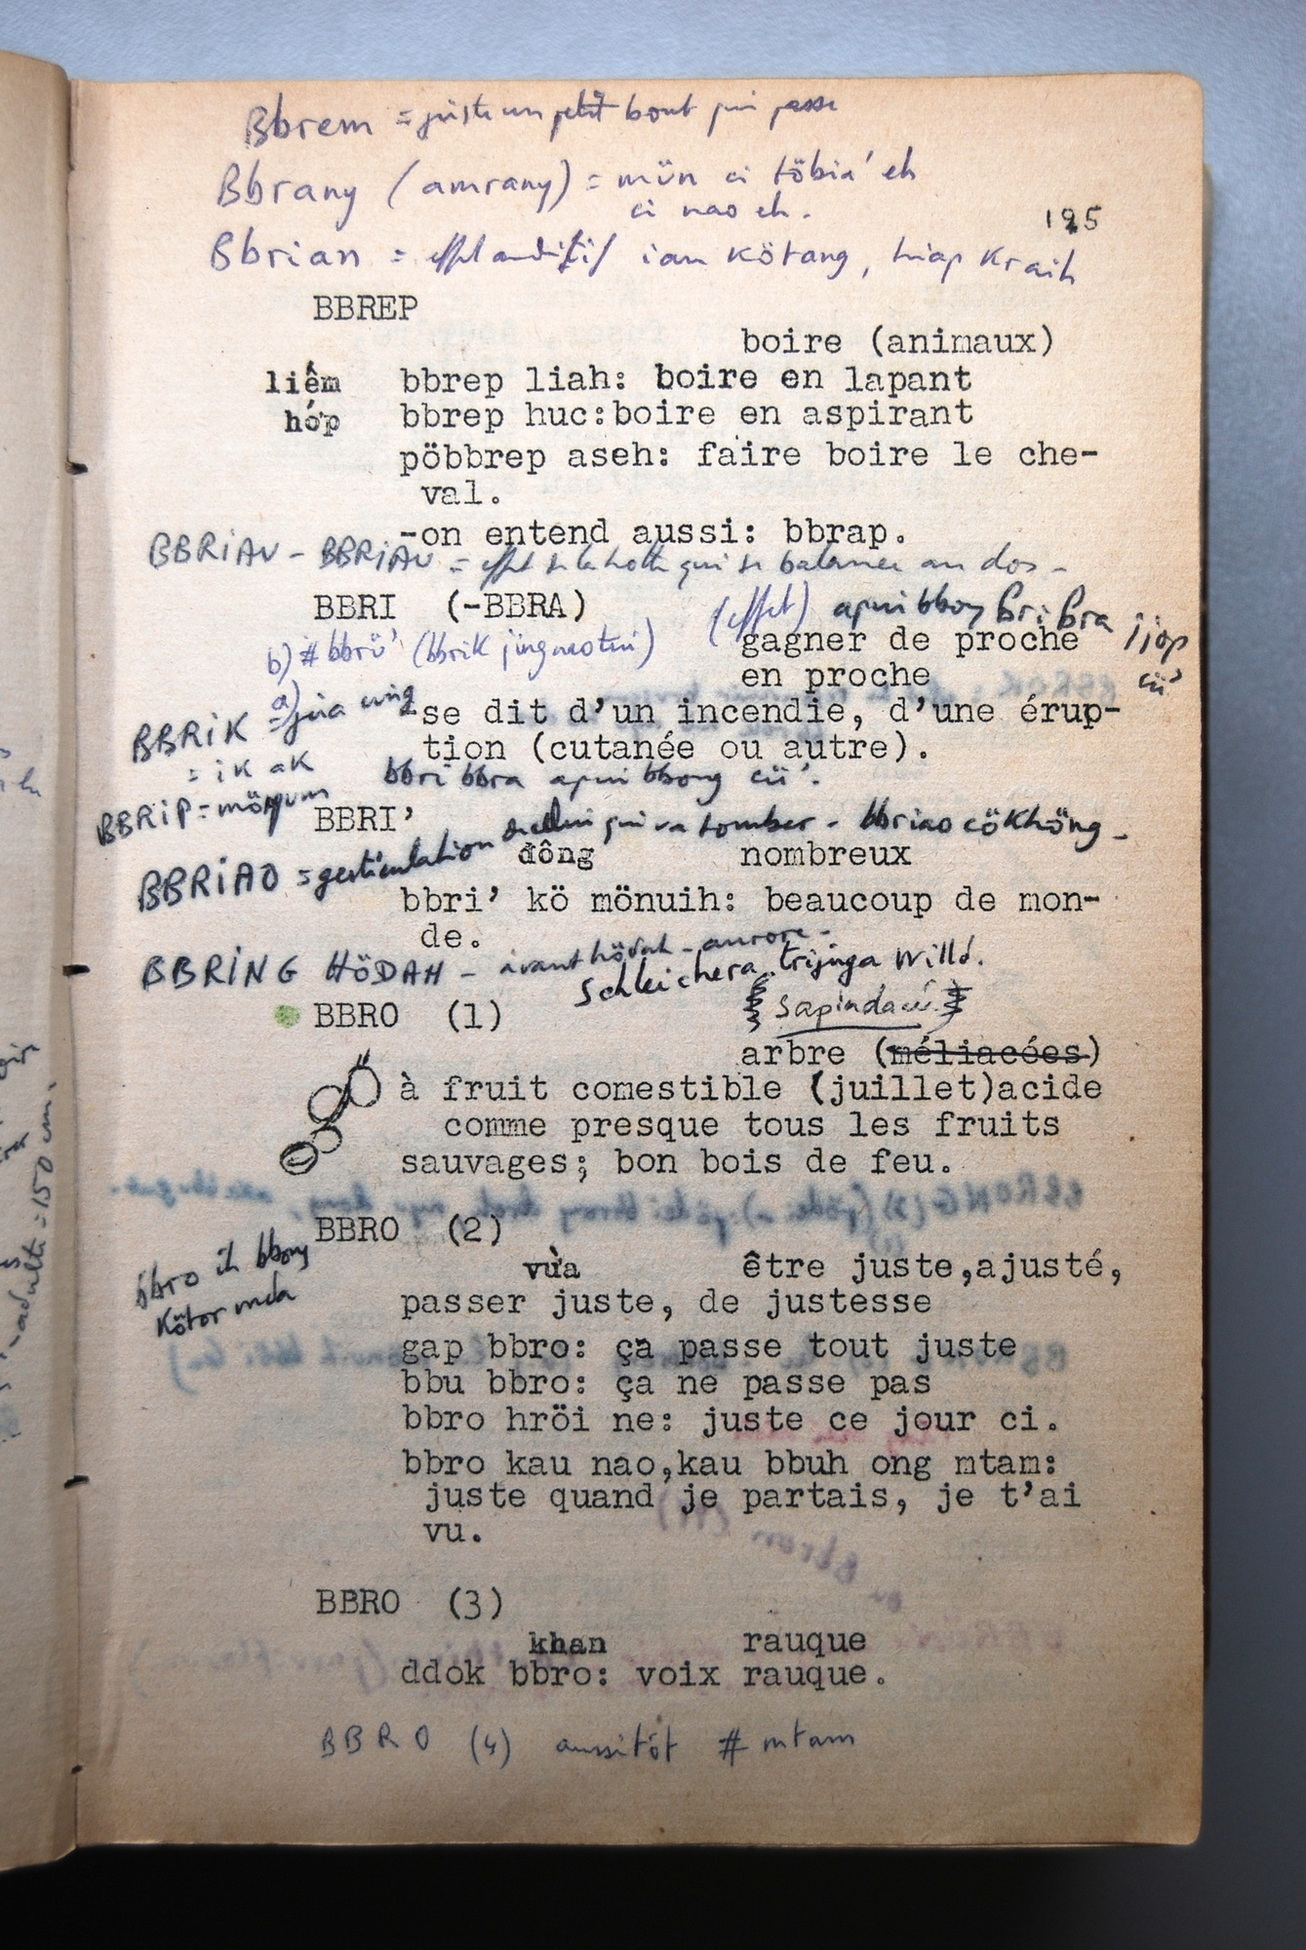 Bbrem = juste un petit bout qui passe
Bbrany (amrany) = mün ci töbia' eh
ci nao eh.
195
Bbrian = effet auditif ian kötang, hiap kraih
BBREP
boire (animaux)
liếm bbrep liah: boire en lapant
hớp bbrep huc:boire en aspirant
pöbbrep aseh: faire boire le che-
val.
-on entend aussi: bbrap.
BBRiAU - BBRiAU = effet de la hotte qui se balance au dos -
BBRI (-BBRA) (effet) apui bbong bri bra jjop
b) # bbrü' gagner de proche
en proche cü'
BBRiK = a) jua
-se dit d'un incendie, d'une érup-
tion (cutanée ou autre).
= ik ak bbri bbra apui bbong cü'.
BBRiP = möpum
BBRI'
BBRiAO = gesticulation de celui qui va tomber - bbriao cökhöng -
đông nombreux
bbri' kö mönuih: beaucoup de mon-
de.
BBRING HÖDAH - avant hödah - aurore -
Schleichera trijuga Willd.
BBRO (1) Sapindacé
arbre (méliacées)
à fruit comestible (juillet)acide
comme presque tous les fruits
sauvages; bon bois de feu.
BBRO (2)
bbro ih bbong
kötor mda
vừa être juste,ajusté,
passer juste, de justesse
gap bbro: ça passe tout juste
bbu bbro: ça ne passe pas
bbro hröi ne: juste ce jour ci.
bbro kau nao,kau bbuh ong mtam:
juste quand je partais, je t'ai
vu.
BBRO (3)
khan rauque
ddok bbro: voix rauque.
BBRO (4) aussitôt # mtam